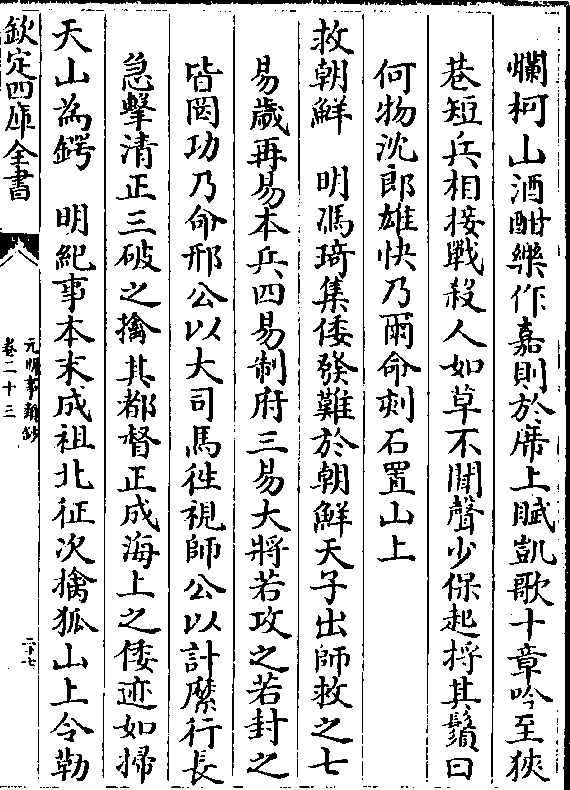 爛柯山酒酣樂作嘉則於席上賦凱歌十章吟至狹
巷短兵相接戰殺人如草不聞聲少保起捋其鬚曰
何物沈郎雄快乃爾命刻石置山上
救朝鮮　明馮琦集倭發難於朝鮮天子出師救之七
易歲再易本兵四易制府三易大將若攻之若封之
皆罔功乃命邢公以大司馬徃視師公以計縻行長
急擊清正三破之擒其都督正成海上之倭迹如掃
天山為鍔　明紀事本末成祖北征次擒狐山上令勒
欽定四庫全書
元明事類鈔
卷二十三
二十七